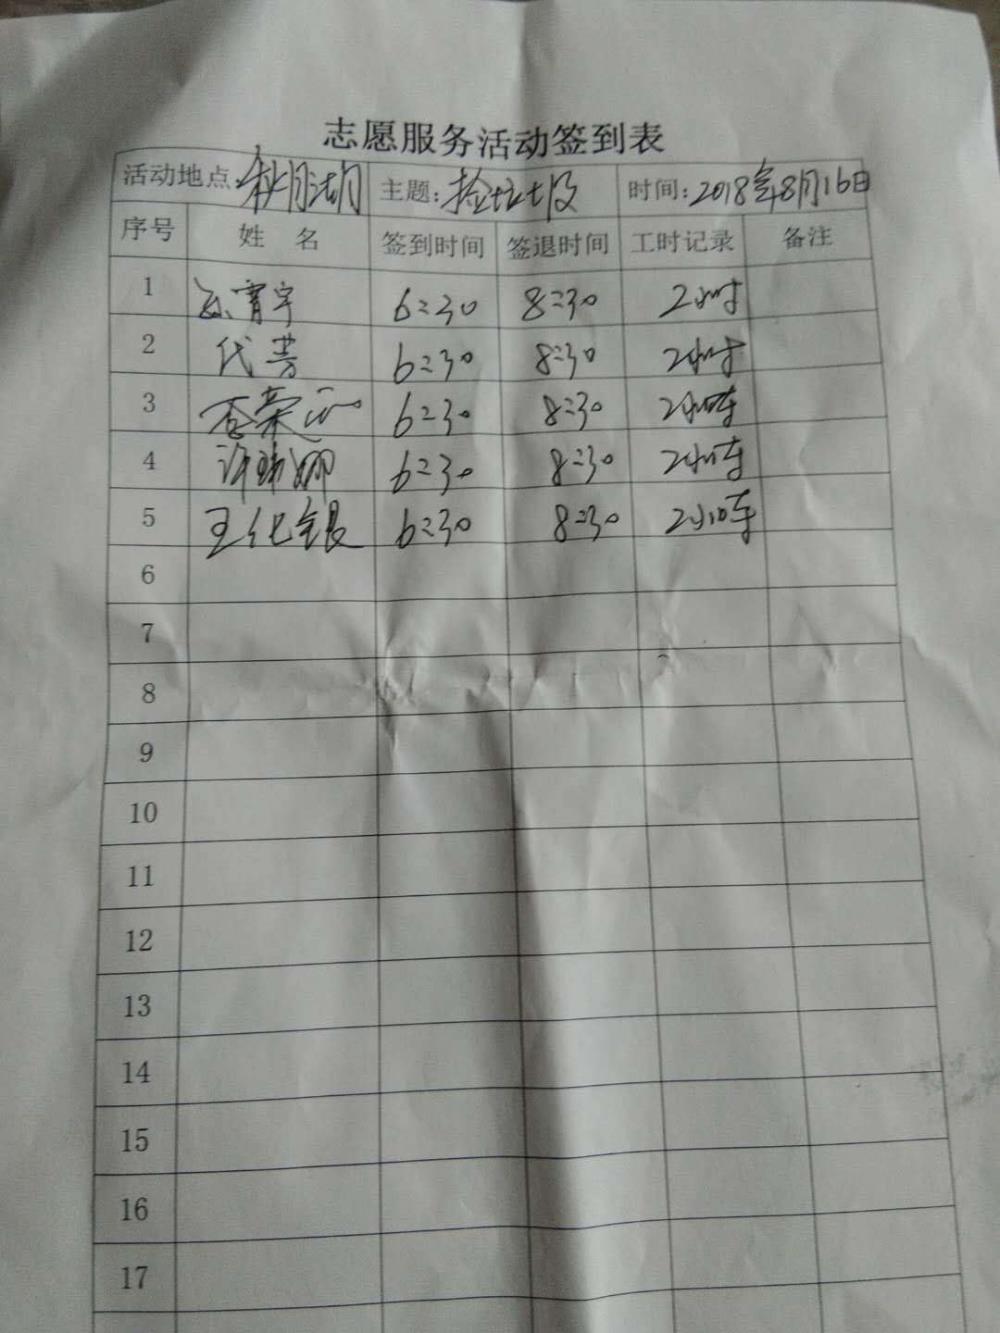 志愿服务活动签到表
活动地点:秋月湖 主题:捡垃圾 时间:2018年8月16日
序号 姓 名 签到时间 签退时间 工时记录 备注
1 宵宇 6:30 8:30 2小时
2 代芳 6:30 8:30 2小时
3 李荣 6:30 8:30 2小时
4 许瑞娜 6:30 8:30 2小时
5 王化银 6:30 8:30 2小时
6
7
8
9
10
11
12
13
14
15
16
17